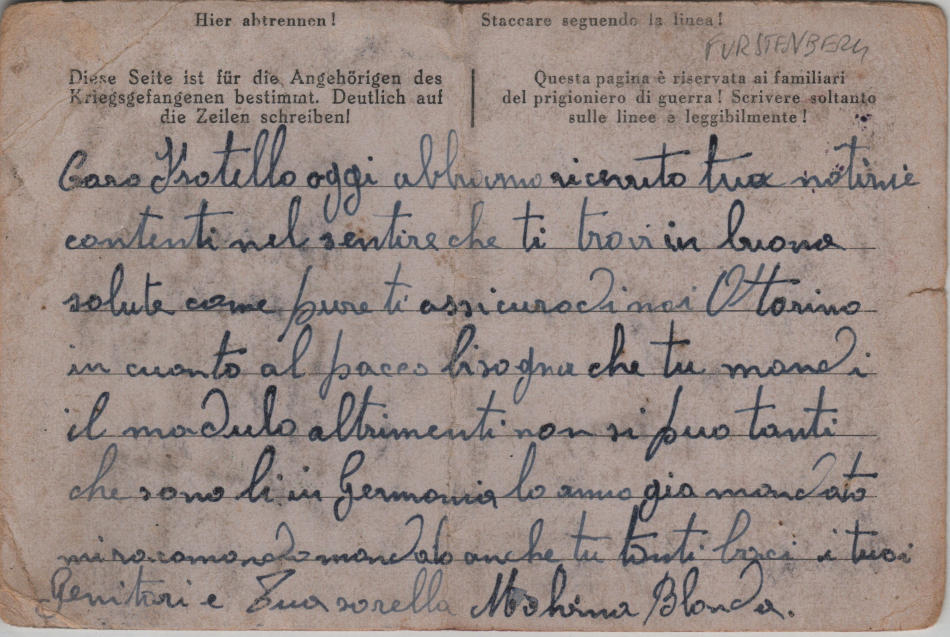 Hier abtrennen!
Staccare seguendo la linea!
FURSTENBERG
Diese Seite ist für die Angehörigen des
Kriegsgefangenen bestimmt. Deutlich auf
die Zeilen schreiben!
Questa pagina è riservata ai familiari
del prigioniero di guerra! Scrivere soltanto
sulle linee e leggibilmente!
Caro Fratello oggi abbiamo ricevuto tua notizie
contenti nel sentire che ti trovi in buona
salute come pure ti assicuro di noi Ottorino
in cuanto al pacco bisogna che tu mandi
il modulo altrimenti non si puo tanti
che sono li in Germania lo anno gia mandato
mi racomando mandalo anche tu tanti baci i tuoi
Genitori e Tua sorella Blonda.